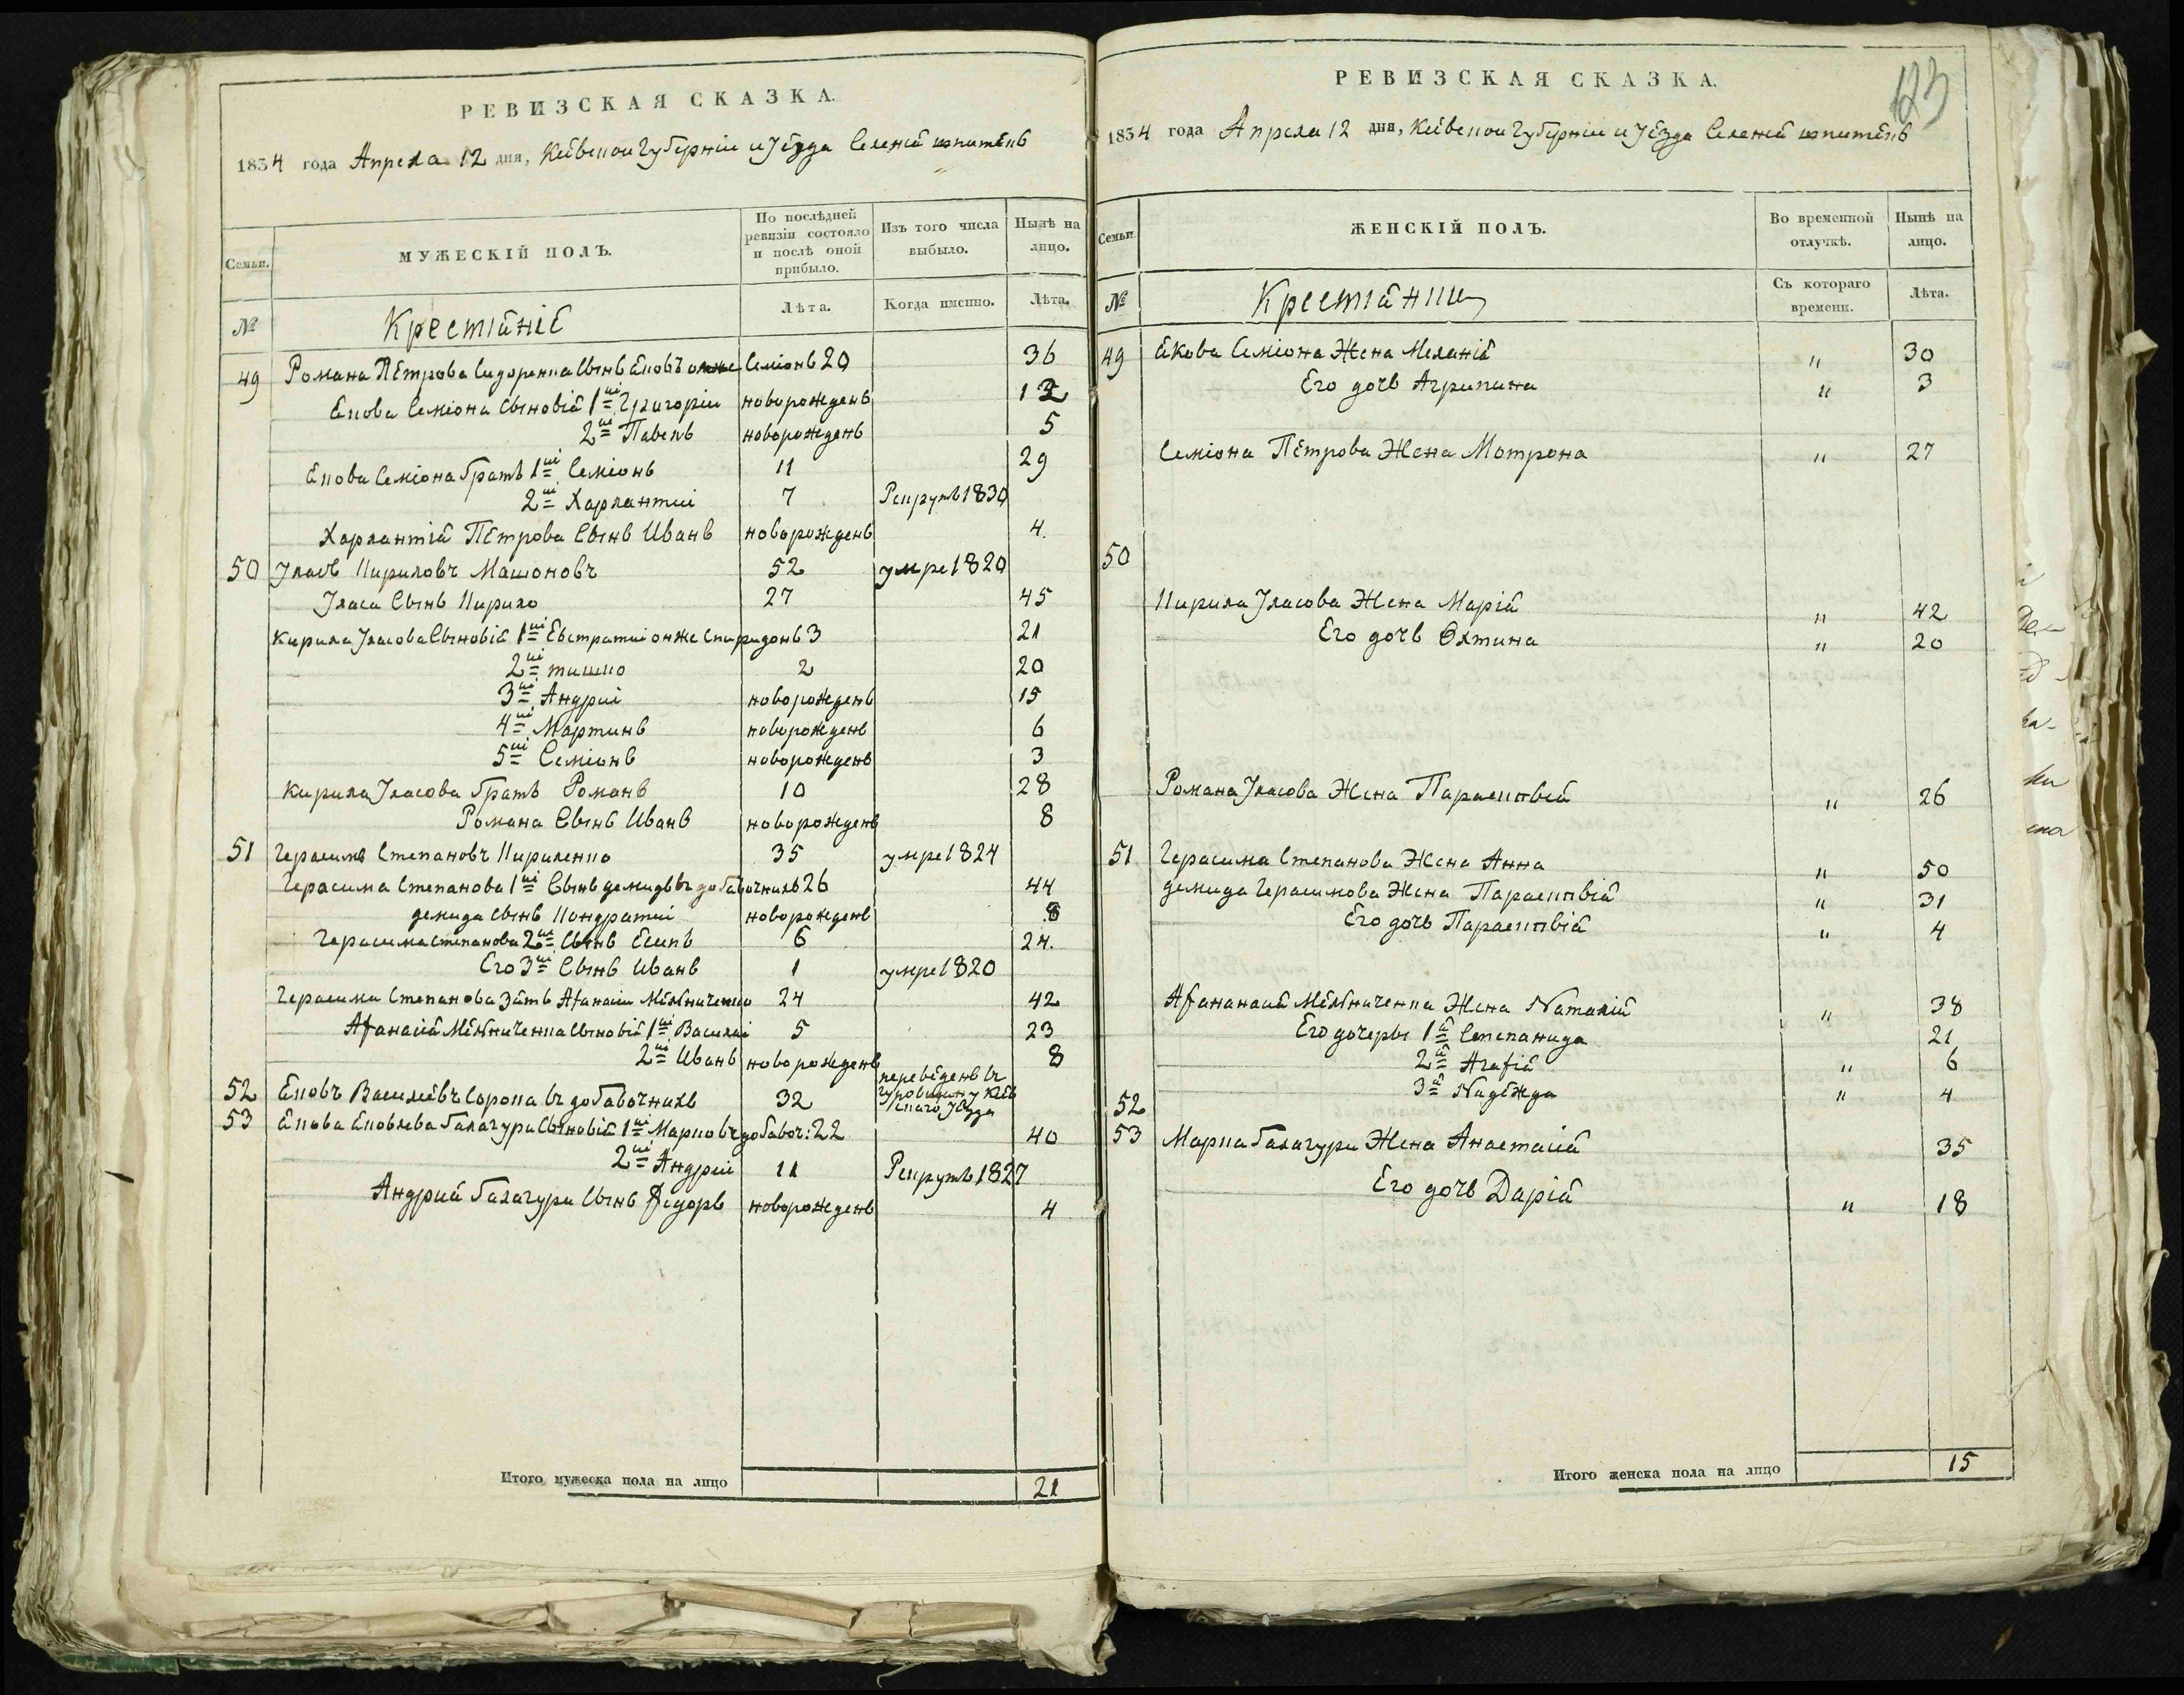 РЕВИЗСКАЯ СКАЗКА.
1834 года Апреля 12 дня, Киевской Губерніи и Уезда Селенія
Семьи.
МУЖЕСКІЙ ПОЛЪ.
По послѣдней ревизіи состояло и послѣ оной прибыло.
Изъ того числа выбыло.
Нынѣ на лицо.
№
Крестіяніе
Лѣта.
Когда именно.
Лѣта.
49 Романа Петрова Сидоренка Сынъ Яковъ онже Семіонъ 20 36
Якова Семіона Сыновія 1й Григорій новорожденъ 12
2й Павелъ новорожденъ 5
Якова Семіона братъ 1й Семіонъ 11 29
2й Харлантій 7 Рекрутъ 1830
Харлантія Петрова Сынъ Иванъ новорожденъ 4
50 Уласъ Кириловъ Машоновъ 52 умре 1820
Уласа Сынъ Кирило 27 45
Кирила Уласова Сыновія 1й Евстратий онже Спиридонъ 3 21
2й тишко 2 20
3й Андрий новорожденъ 15
4й Мартинъ новорожденъ 6
5й Семіонъ новорожденъ 3
Кирила Уласова братъ Романъ 10 28
Романа Сынъ Иванъ новорожденъ 8
51 Герасимъ Степановъ Кириленко 35 умре 1824
Герасима Степанова 1й Сынъ демидъ въ добавочнихъ 26 44
демида Сынъ Кондратий новорожденъ 8
Герасима Степанова 2й Сынъ Есипъ 6 24.
Его 3й Сынъ Иванъ 1 умре 1820
Герасима Степанова Зять Афанасій Мельниченко 24 42
Афанасія Мельниченка Сыновія 1й Василий 5 23
2й Иванъ новорожденъ 8
52 Яковъ Василиевъ Сорока въ добавочнихъ 32 переведенъ въ
Киев
скаго Уезда
53 Якова Яковлева Балагури Сыновія 1й Марко въ добавоч: 22 40
2й Андрий 11 Рекрутъ 1827
Андрия Балагури Сынъ Федоръ новорожденъ 4
Итого мужеска пола на лицо 21
РЕВИЗСКАЯ СКАЗКА.
123
1834 года Апреля 12 дня, Киевской Губерніи и Уезда Селенія
Семьи
ЖЕНСКІЙ ПОЛЪ.
Во временной отлучкѣ.
Нынѣ на лицо.
№
Крестіянки
Съ котораго времени.
Лѣта.
49 Якова Семіона Жена Меланія " 30
Его дочь Агрипина " 3
Семіона Петрова Жена Мотрона " 27
50
Кирила Уласова Жена Марія " 42
Его дочь Охтина " 20
Романа Уласова Жена Параскивія " 26
51 Герасима Степанова Жена Анна " 50
демида Герасимова Жена Параскивія " 31
Его дочь Параскивія " 4
Афананасія Мельниченка Жена Наталія " 38
Его дочеры 1я Степанида 21
2я Агафія " 6
3я Надежда " 4
52
53 Марка Балагури Жена Анастасія 35
Его дочь Дарія " 18
Итого женска пола на лицо 15